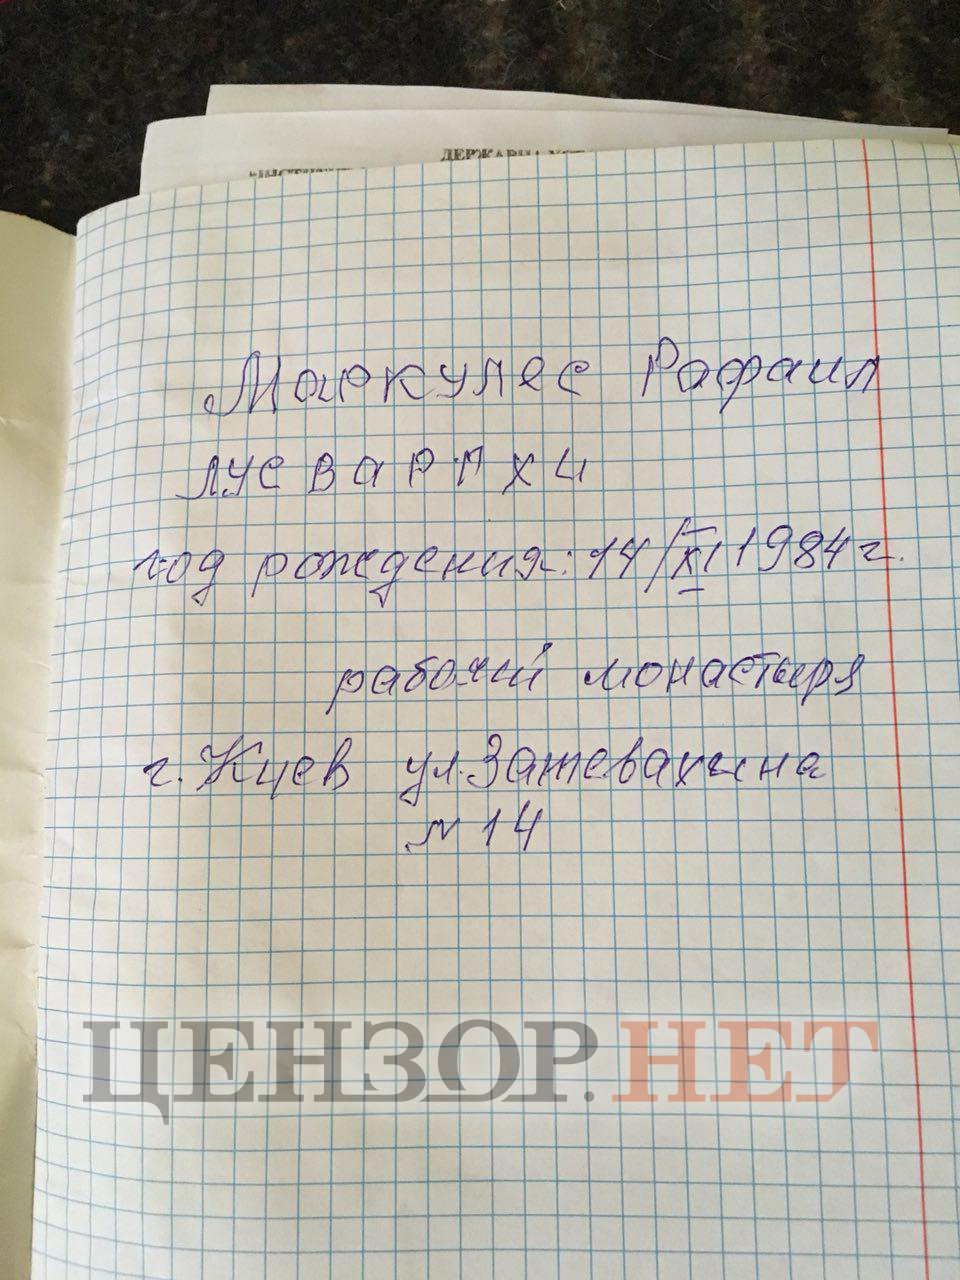 ДЕРЖАВНА УСТ
Маркулес Рафаил
лусварпхи
год рождения: 14/XI 1984 г.
рабочий монастыря
г. Киев ул. Затевахина
N 14
ЦЕНЗОР.НЕТ